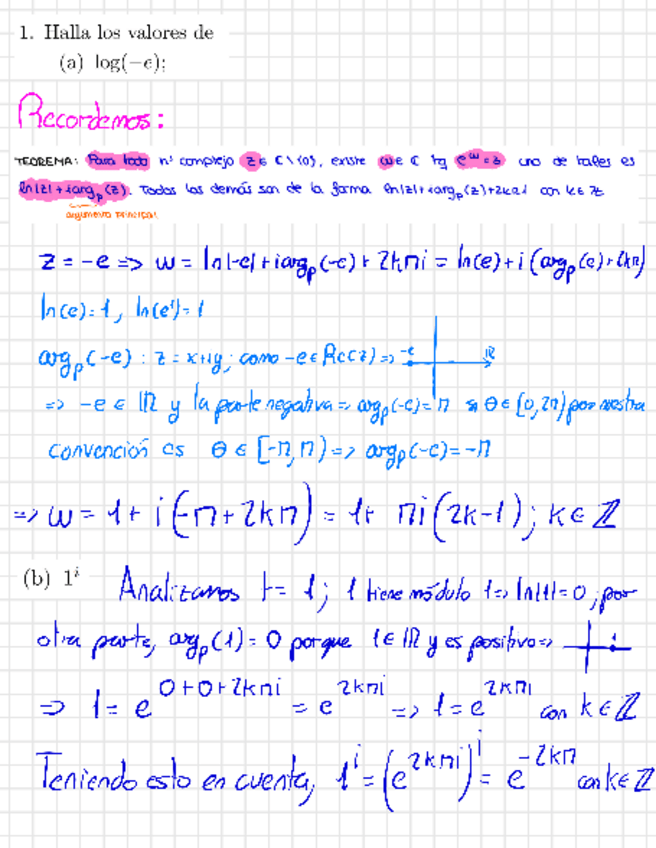 1. Halla los valores de
(a) log(−e);
Recordemos:
TEOREMA: Para todo nº complejo z ∈ ℂ\{0}, existe w ∈ ℂ tq e^w = z uno de tales es
ln|z| + i arg_p(z). Todas las demás son de la forma ln|z| + i arg_p(z) + 2kπi con k ∈ ℤ
argumento principal
z = -e => w = ln|-e| + i arg_p(-e) + 2kπi = ln(e) + i(arg_p(e) + 2kπ)
ln(e) = 1, ln(e¹) = 1
arg_p(-e) : z = x+iy; como -e ∈ Re(z) => -e ℝ
=> -e ∈ ℝ y la parte negativa => arg_p(-e) = π si θ ∈ [0, 2π) por nuestra
convención es θ ∈ [-π, π) => arg_p(-e) = -π
=> w = 1 + i(-π + 2kπ) = 1 + πi(2k-1); k ∈ ℤ
(b) 1^i Analizamos t = 1; 1 tiene módulo 1 => ln|1| = 0, por
otra parte, arg_p(1) = 0 porque 1 ∈ ℝ y es positivo =>
=> 1 = e^{0+0+2kπi} = e^{2kπi} => 1 = e^{2kπi} con k ∈ ℤ
Teniendo esto en cuenta, 1^i = (e^{2kπi})^i = e^{-2kπ} con k ∈ ℤ